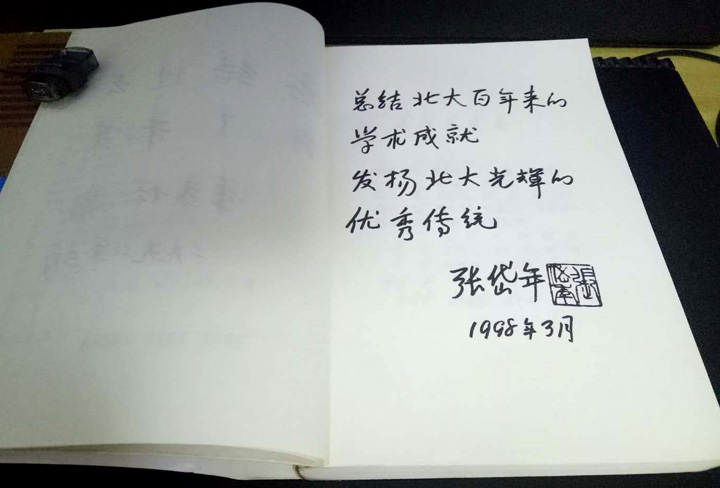 总结北大百年来的
学术成就
发扬北大光辉的
优秀传统
张岱年
1998年3月